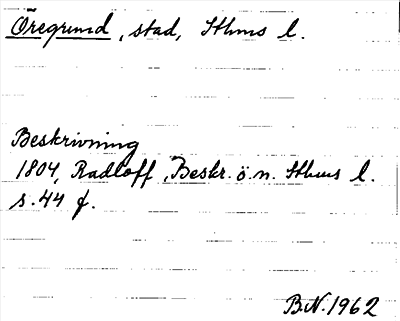 Öregrund, stad, Sthms l.
Beskrivning
1804, Radloff, Beskr. ö. n. Sthms l.
s. 44 f.
B.N. 1962